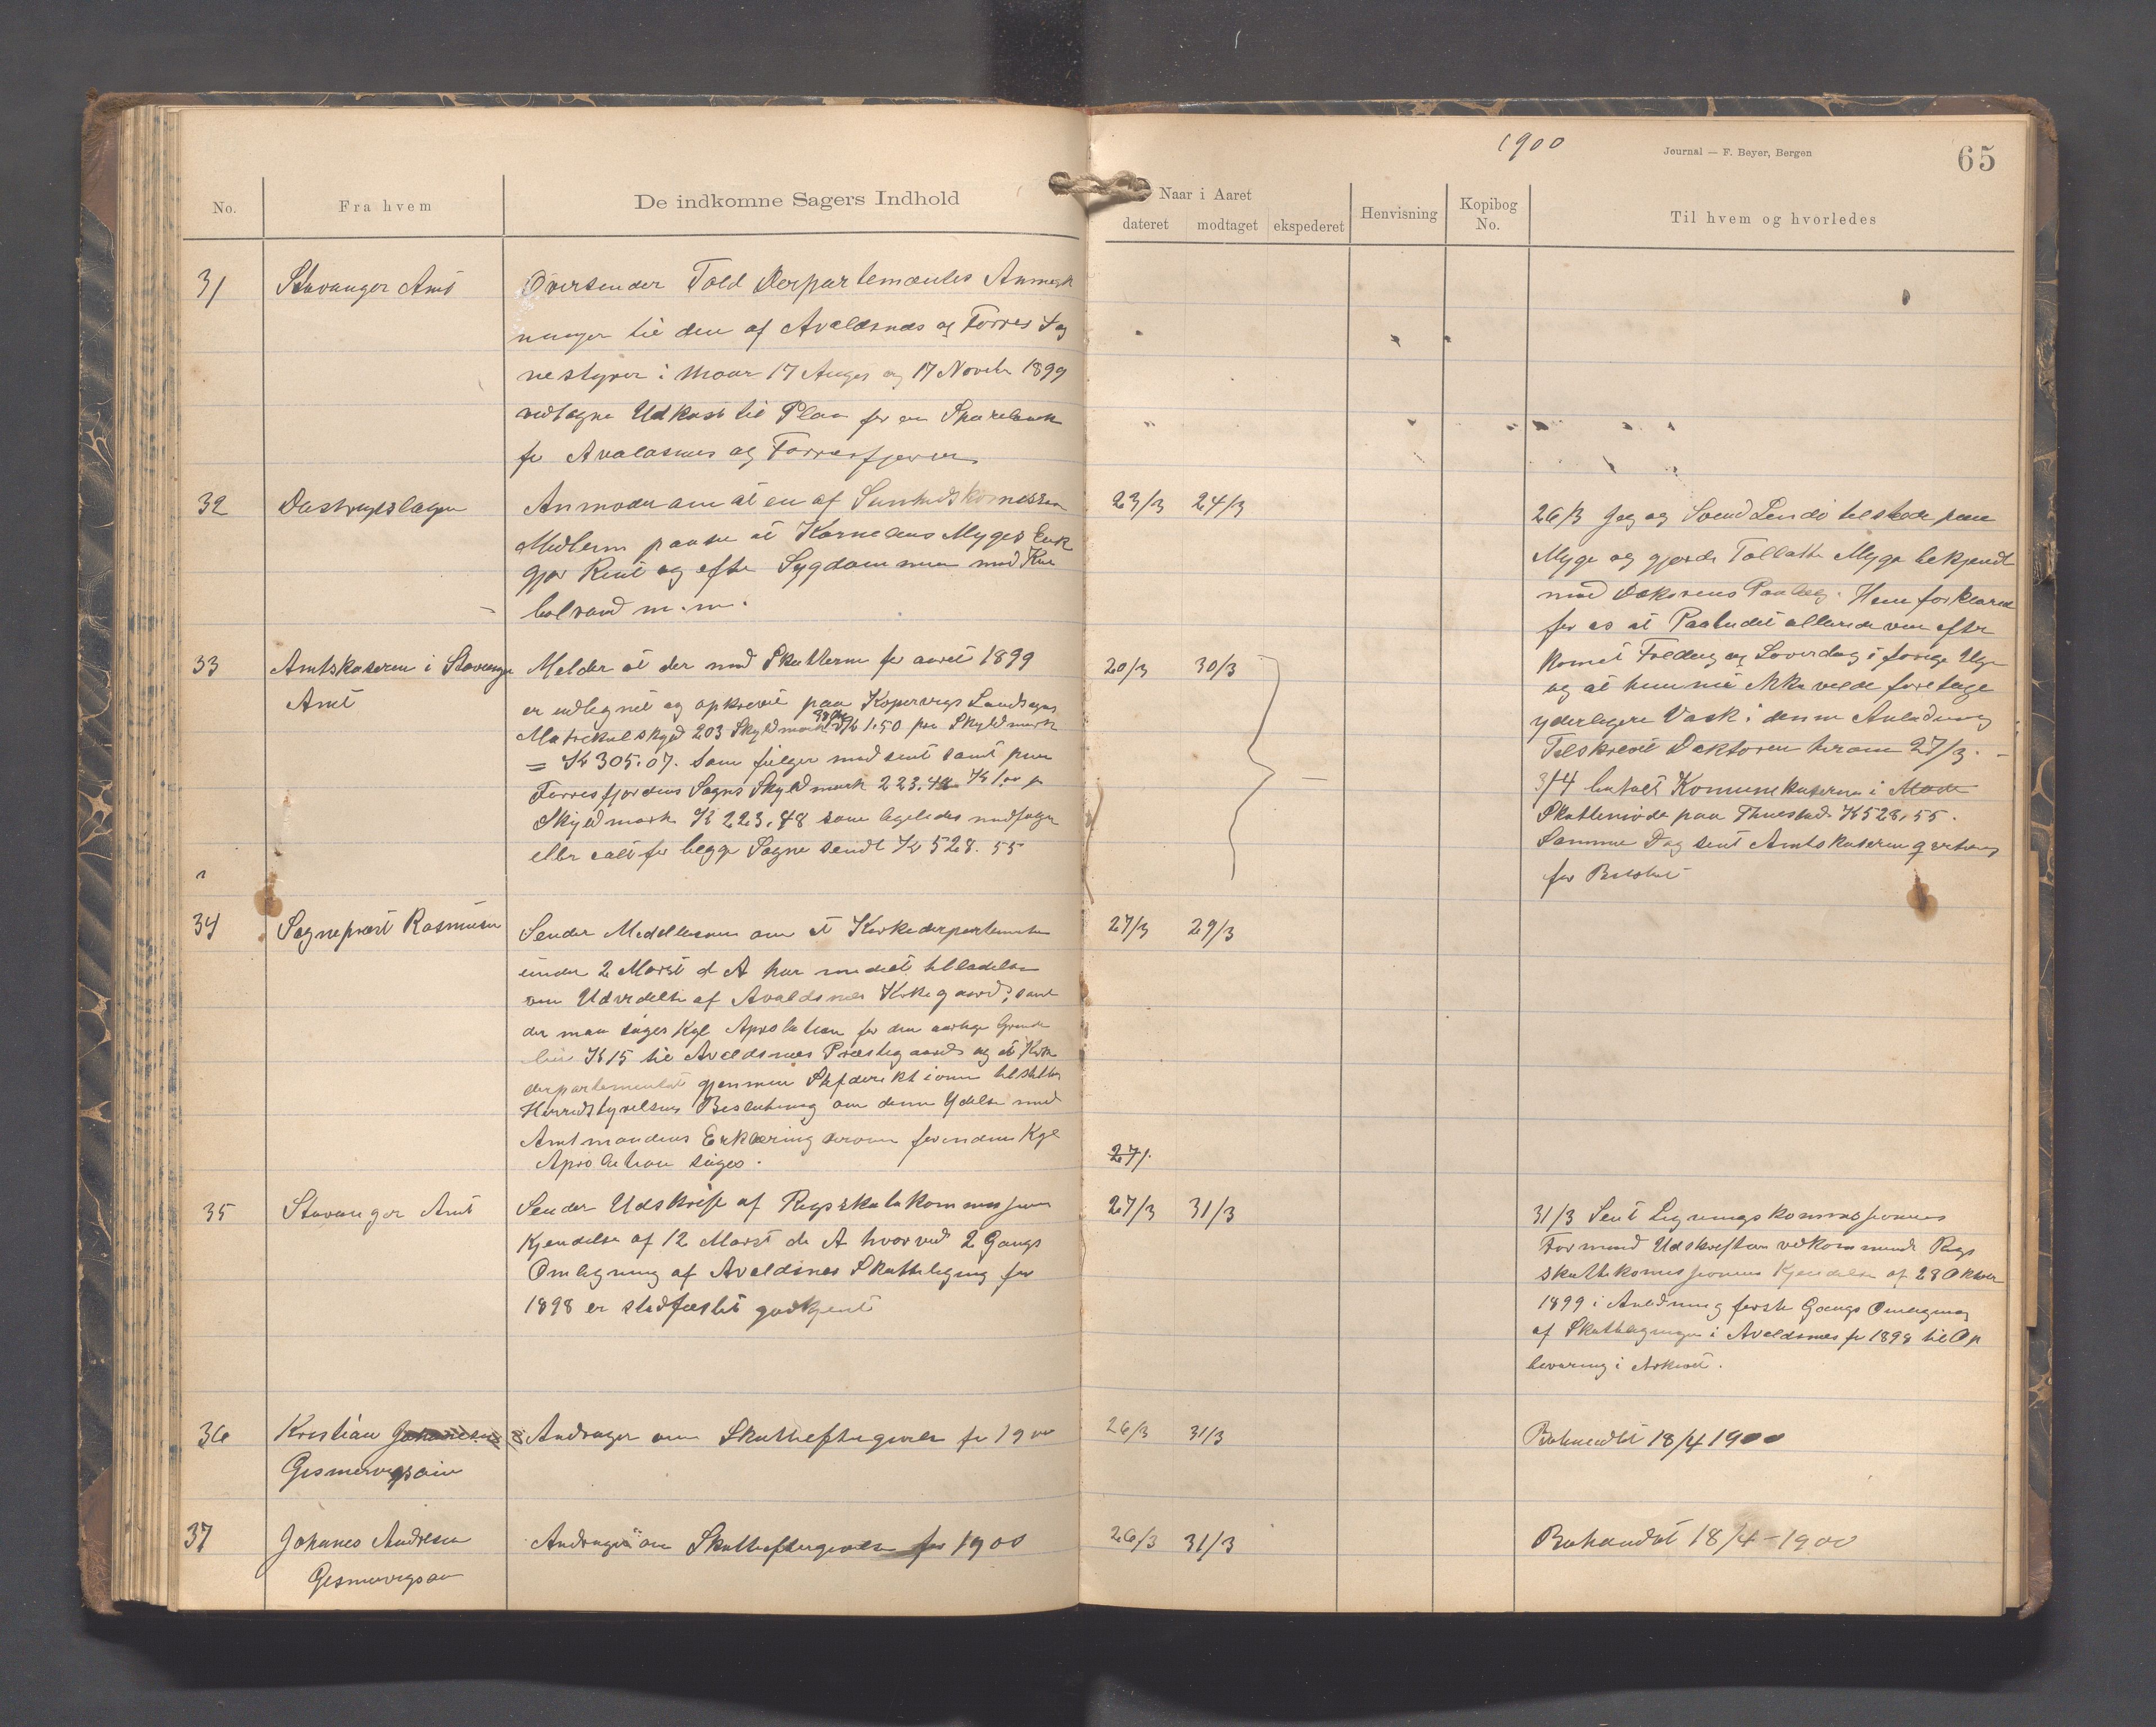 1900
Journal — F. Beyer, Bergen
65
No.
Fra hvem
De indkomne Sagers Indhold
Naar i Aaret
dateret
modtaget
ekspederet
Henvisning
Kopibog No.
Til hvem og hvorledes
31
Stavanger Amt
Oversender Told Derpartementes Anmærk
ninger til den af Avaldsnes og Torves Sog
nestyrer i Moar 17 Auges og 17 Novebr 1899
vedtagne Udkast til Plan for en Sparebank
for Avaldsnes og Torvesfjorden
32
Anmoder om at en af Sunheds komission
Medlem paase at Kornelius Myges Enk
gjør Rent og efter Sygdommen med Kar
bolvand m.m.
23/3
24/3
26/3 Jeg og Svend Lindø tilstede paa
Myge og gjorde Myge bekjendt
med Doktorens Paalæg. Hun forklared
for os at Paabudet allerede var efter
komet Fredag og Løverdag i forige Uge
og at hun nu ikke vilde foretage
yderligere Vask i denne Anledning
Tilskrevet Doktoren herom 27/3.
33
Amtskaseren i Stavanger
Amt
Melder at der med Skatterne for aaret 1899
er udlignet og opkrevet paa Kopervigs Landsogns
Matrikulskyld 203 Skyldmark 38 Øre a Kr 1.50 pr Skyldmark
= Kr 305.07. som følger med sent samt paa
Torvesfjordens Sogns Skyldmark 223.48 Kr 1.00 pr
Skyldmark Kr 223.48 som ligeledes medfølger
eller ealt for begge Sogne sendt Kr 528.55
20/3
30/3
3/4 betalt Komunekaseren i Møde
Skattemøde paa Thuestad Kr 528.55.
Samme Dag sent Amtskaseren qvitering
for Beløbet
34
Sogneprest Rasmusen
Sender Meddelelse om at Kirkederpartementet
under 2 Marst d A har medelt tilladelse
om Udvidelse af Avaldsnes Kirkegaard, samt
der maa søges Kgl Aprobation for den aarlige Grunde
leie Kr 15 til Avaldsnes Præstegaard og at Kirke
derpartementet gjennem Stifdirektionen tilstilles
Herredstyrelsens Beslutning om denne Ydelse med
Amtmandens Erklæring herom forinden Kgl
Aprobation søges.
27/3
29/3
27/.
35
Stavanger Amt
Sender Udskrift af Rigsskatekommissjonens
Kjendelse af 12 Marst d A hvorved 2 Gangs
Omligning af Avaldsnes Skatteligning for
1898 er stadfæstet godkjent
27/3
31/3
31/3 Sent Ligningskommissionens
Formand Udskriften vedkommende Rigs
skattekomissionens Kjendelse af 28 Oktober
1899 i Anledning første Gangs Omligning
af Skatteligningen i Avaldsnes for 1898 til Op
bevaring i Arkivet.
36
Kristian Johannesen
Gismervigsøien
Andrager om Skatteeftergivelse for 1900
26/3
31/3
Behandlet 18/4 1900
37
Johanes Andresen
Gismervigsøen
Andrager om Skatteeftergivelse for 1900
26/3
31/3
Behandlet 18/4 - 1900